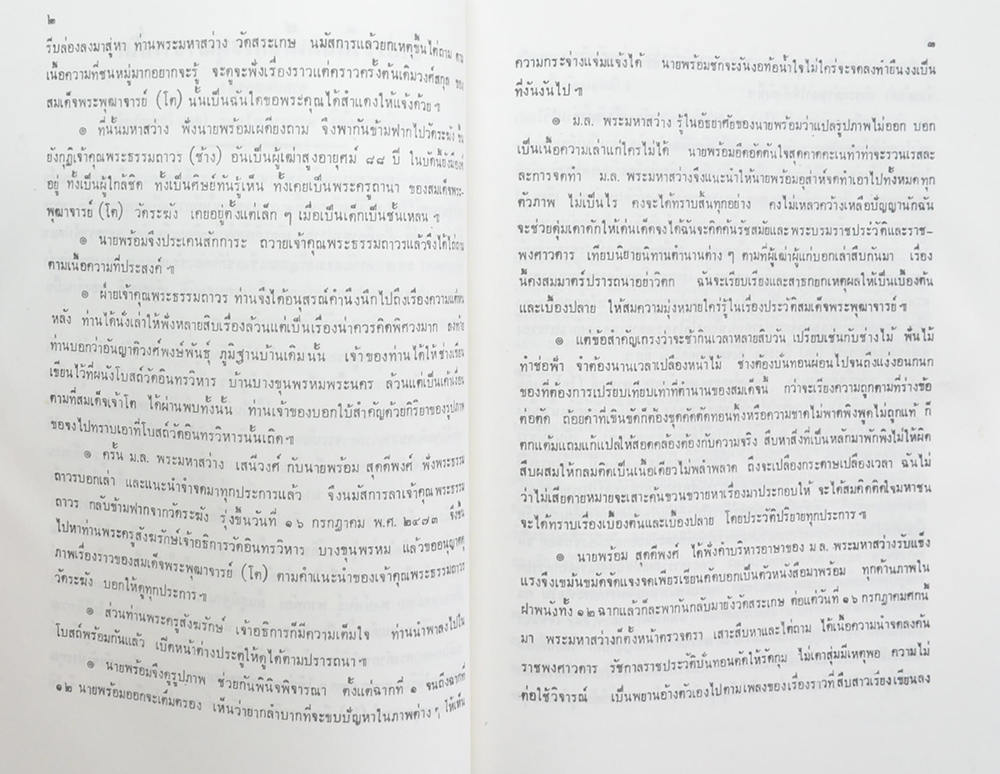 ๒
รีบล่องลงมาสู่หา ท่านพระมหาสว่าง วัดสระเกษ นมัสการแล้วยกเหตุขึ้นไต่ถาม ตาม
เนื้อความที่ชนหมู่มากอยากจะรู้ จะดูจะฟังเรื่องราวแต่คราวครั้งต้นเดิมวงศ์สกุล ของ
สมเด็จพระพุฒาจารย์ (โต) นั้นเป็นฉันใดขอพระคุณได้สำแดงให้แจ้งด้วย ฯ
๏ ที่นั้นมหาสว่าง ฟังนายพร้อมเผดียงถาม จึงพากันข้ามฟากไปวัดระฆัง ขึ้น
ยังกุฏิเจ้าคุณพระธรรมถาวร (ช้าง) อันเป็นผู้เฒ่าสูงอายุศม์ ๘๘ ปี ในบัดนี้ยังมีองค์
อยู่ ทั้งเป็นผู้ใกล้ชิด ทั้งเป็นศิษย์ทันรู้เห็น ทั้งเคยเป็นพระครูถานา ของสมเด็จพระ-
พุฒาจารย์ (โต) วัดระฆัง เคยอยู่ตั้งแต่เล็ก ๆ เมื่อเป็นเด็กเป็นชั้นเหลน ฯ
๏ นายพร้อมจึงประเคนสักการะ ถวายเจ้าคุณพระธรรมถาวรแล้วจึงได้ไต่ถาม
ตามเนื้อความที่ประสงค์ ฯ
๏ ฝ่ายเจ้าคุณพระธรรมถาวร ท่านจึงได้อนุสรณ์คำนึงนึกไปถึงเรื่องความแต่หน
หลัง ท่านได้นั่งเล่าให้ฟังหลายสิบเรื่องล้วนแต่เป็นเรื่องน่าควรคิดพิศวงมาก ลงท้าย
ท่านบอกว่าอันญาติวงศ์พงษ์พันธุ์ ภูมิฐานบ้านเดิมนั้น เจ้าของท่านได้ให้ช่างเขียน
เขียนไว้ที่ผนังโบสถ์วัดอินทรวิหาร บ้านบางขุนพรหมพระนคร ล้วนแต่เป็นเค้าเงื่อน
ตามที่สมเด็จเจ้าโต ได้ผ่านพบทั้งนั้น ท่านเจ้าของบอกใบ้สำคัญด้วยกิริยาของรูปภาพ
ขอจงไปทราบเอาที่โบสถ์วัดอินทรวิหารนั้นเถิด ฯ
๏ ครั้น ม.ล. พระมหาสว่าง เสนีวงศ์ กับนายพร้อม สุดดีพงศ์ ฟังพระธรรม
ถาวรบอกเล่า และแนะนำจำจดมาทุกประการแล้ว จึงนมัสการลาเจ้าคุณพระธรรม
ถาวร กลับข้ามฟากจากวัดระฆัง รุ่งขึ้นวันที่ ๑๖ กรกฎาคม พ.ศ. ๒๔๗๓ จึงขึ้น
ไปหาท่านพระครูสังฆรักษ์เจ้าอธิการวัดอินทรวิหาร บางขุนพรหม แล้วขออนุญาตดู
ภาพเรื่องราวของสมเด็จพระพุฒาจารย์ (โต) ตามคำแนะนำของเจ้าคุณพระธรรมถาวร
วัดระฆัง บอกให้ดูทุกประการ ฯ
๏ ส่วนท่านพระครูสังฆรักษ์ เจ้าอธิการก็มีความเต็มใจ ท่านนำพาลงไปใน
โบสถ์พร้อมกันแล้ว เปิดหน้าต่างประตูให้ดูได้ตามปรารถนา ฯ
๏ นายพร้อมจึงดูรูปภาพ ช่วยกันพินิจพิจารณา ตั้งแต่ฉากที่ ๑ จนถึงฉากที่
๑๒ นายพร้อมออกจะเต็มตรอง เห็นว่ายากลำบากที่จะขบปัญหาในภาพต่าง ๆ ให้เห็น
๓
ความกระจ่างแจ่มแจ้งได้ นายพร้อมชักจะงันงอท้อน้ำใจไม่ใคร่จะจดลงทำยืนงงเป็น
ที่งันงันไป ฯ
๏ ม.ล. พระมหาสว่าง รู้ในอัธยาศัยของนายพร้อมว่าแปลรูปภาพไม่ออก บอก
เป็นเนื้อความเล่าแก่ใครไม่ได้ นายพร้อมอึดอัดตันใจสุดคาดคะเนทำท่าจะรวนเรสละ
ละการจดทำ ม.ล. พระมหาสว่างจึงแนะนำให้นายพร้อมอุสาห์จดทำเอาไปทั้งหมดทุก
ตัวภาพ ไม่เป็นไร คงจะได้ทราบสิ้นทุกอย่าง คงไม่เหลวคว้างเหลือปัญญานักฉัน
จะช่วยดุ่มเดาดักให้เด่นเด็ดจงได้ฉันจะคิดค้นรัชสมัยและพระบรมราชประวัติและราช-
พงศาวดาร เทียบนิยายนิทานตำนานต่าง ๆ ตามที่ผู้เฒ่าผู้แก่บอกเล่าสืบกันมา เรื่อง
นี้คงสมมาตร์ปรารถนาอย่าวิตก ฉันจะเรียบเรียงและสาธกยกเหตุผลให้เป็นเบื้องต้น
และเบื้องปลาย ให้สมความมุ่งหมายใคร่รู้ในเรื่องประวัติสมเด็จพระพุฒาจารย์ ฯ
๏ แต่ข้อสำคัญเกรงว่าจะช้ากินเวลาหลายสิบวัน เปรียบเช่นกับช่างไม้ ฟั่นไม้
ทำช่อฟ้า จำต้องนานเวลาเปลืองหน้าไม้ ช่างต้องบั่นทอนผ่อนไปจนถึงแง่งอนกนก
ของที่ต้องการเปรียบเทียบเท่าที่ตำนานของสมเด็จนี้ กว่าจะเรียงความถูกตามที่ร่างข้อ
ต่อตัด ถ้อยคำที่เขินขัดก็ต้องขุดคัดตัดทอนทิ้งหรือความขาดไม่พาดพิงพูดไม่ถูกแท้ ก็
ตกแต้มแถมแก้แปลให้สอดคล้องต้องกับความจริง สืบหาสิ่งที่เป็นหลักมาพักพิงไม่ให้ผิด
สืบผสมให้กลมติดเป็นเนื้อเดียวไม่พลำพลาด ถึงจะเปลืองกระดาษเปลืองเวลา ฉันไม่
ว่าไม่เสียดายหมายจะเสาะค้นขวนขวายหาเรื่องมาประกอบให้ จะได้สมคิดติดใจมหาชน
จะได้ทราบเรื่องเบื้องต้นและเบื้องปลาย โดยประวัติปริยายทุกประการ ฯ
๏ นายพร้อม สุดดีพงศ์ ได้ฟังคำบริหารอาษาของ ม.ล. พระมหาสว่างรับแข็ง
แรงจึงเขม้นขมัดจัดแจงจดเพียรเขียนคัดบอกเป็นตัวหนังสือมาพร้อม ทุกด้านภาพใน
ฝาผนังทั้ง ๑๒ ฉากแล้วก็ละพากันกลับมายังวัดสระเกษ ต่อแต่วันที่ ๑๖ กรกฎาคมศกนี้
มา พระมหาสว่างก็ตั้งหน้าตรวจตรา เสาะสืบหาและไต่ถาม ได้เนื้อความนำจดลงค้น
ราชพงศาวดาร รัชกาลราชประวัติบั่นทอนตัดให้รัดกุม ไม่เดาสุ่มมีเหตุพอ ความไม่
ต่อใช้วิจารณ์ เป็นพยานอ้างตัวเองไปตามเพลงของเรื่องราวที่สืบสาวเรียงเขียนลง